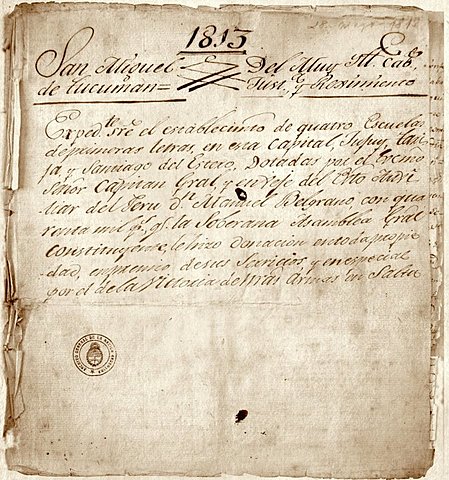 1813
San Miguel
de Tucuman=
Del Muy Ill. Cab.
Just.ª y Reximiento
Exped.te sre el establecim.to de quatro Escuelas
de primeras letras, en esta Capital, Jujuy, Tari-
ja, y Santiago del Estero, Dotadas por el Exmo
Señor Capitan Gral, y en Xefe del Exto Auxi-
liar del Peru Dn. Manuel Belgrano con qua-
renta mil p.s q.e la Soberana Asamblea Gral
Constituyente, le hizo donacion en toda propie-
dad, en premio de sus Servicios y en especial
por el de la Victoria de ntras Armas en Salta